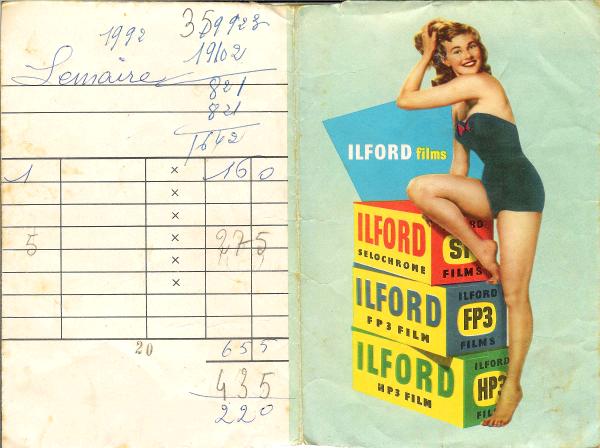 1992
35 19923
Lemaire
19102
821
821
1642
1 x 160
x
x
5 x 275
x
x
20
655
435
220
ILFORD films
ILFORD
SELOCHROME
FILMS
ILFORD
FP3 FILM
ILFORD
FP3
FILMS
ILFORD
HP3 FILM
ILFORD
HP3